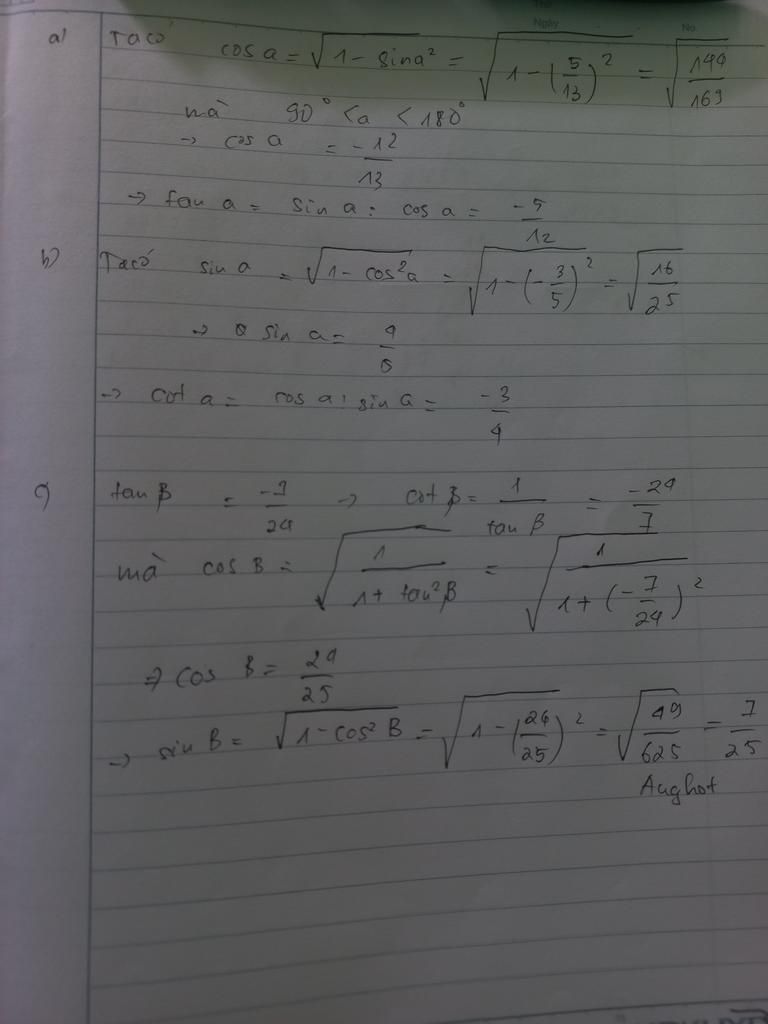 Thứ
Ngày No.
a) Ta có cos a = √(1 - sina²) = √(1 - (5/13)²) = √(144/169)
mà 90° < a < 180°
→ cos a = -12/13
→ tan a = sin a : cos a = -5/12
b) Ta có sin a = √(1 - cos²a) = √(1 - (-3/5)²) = √(16/25)
→ sin a = 4/5
→ cot a = cos a : sin a = -3/4
c) tan β = -7/24 → cot β = 1/tan β = -24/7
mà cos B = √(1/(1 + tan²β)) = √(1/(1 + (-7/24)²))
⇒ cos B = 24/25
→ sin B = √(1 - cos² B) = √(1 - (24/25)²) = √(49/625) = 7/25
Aughot